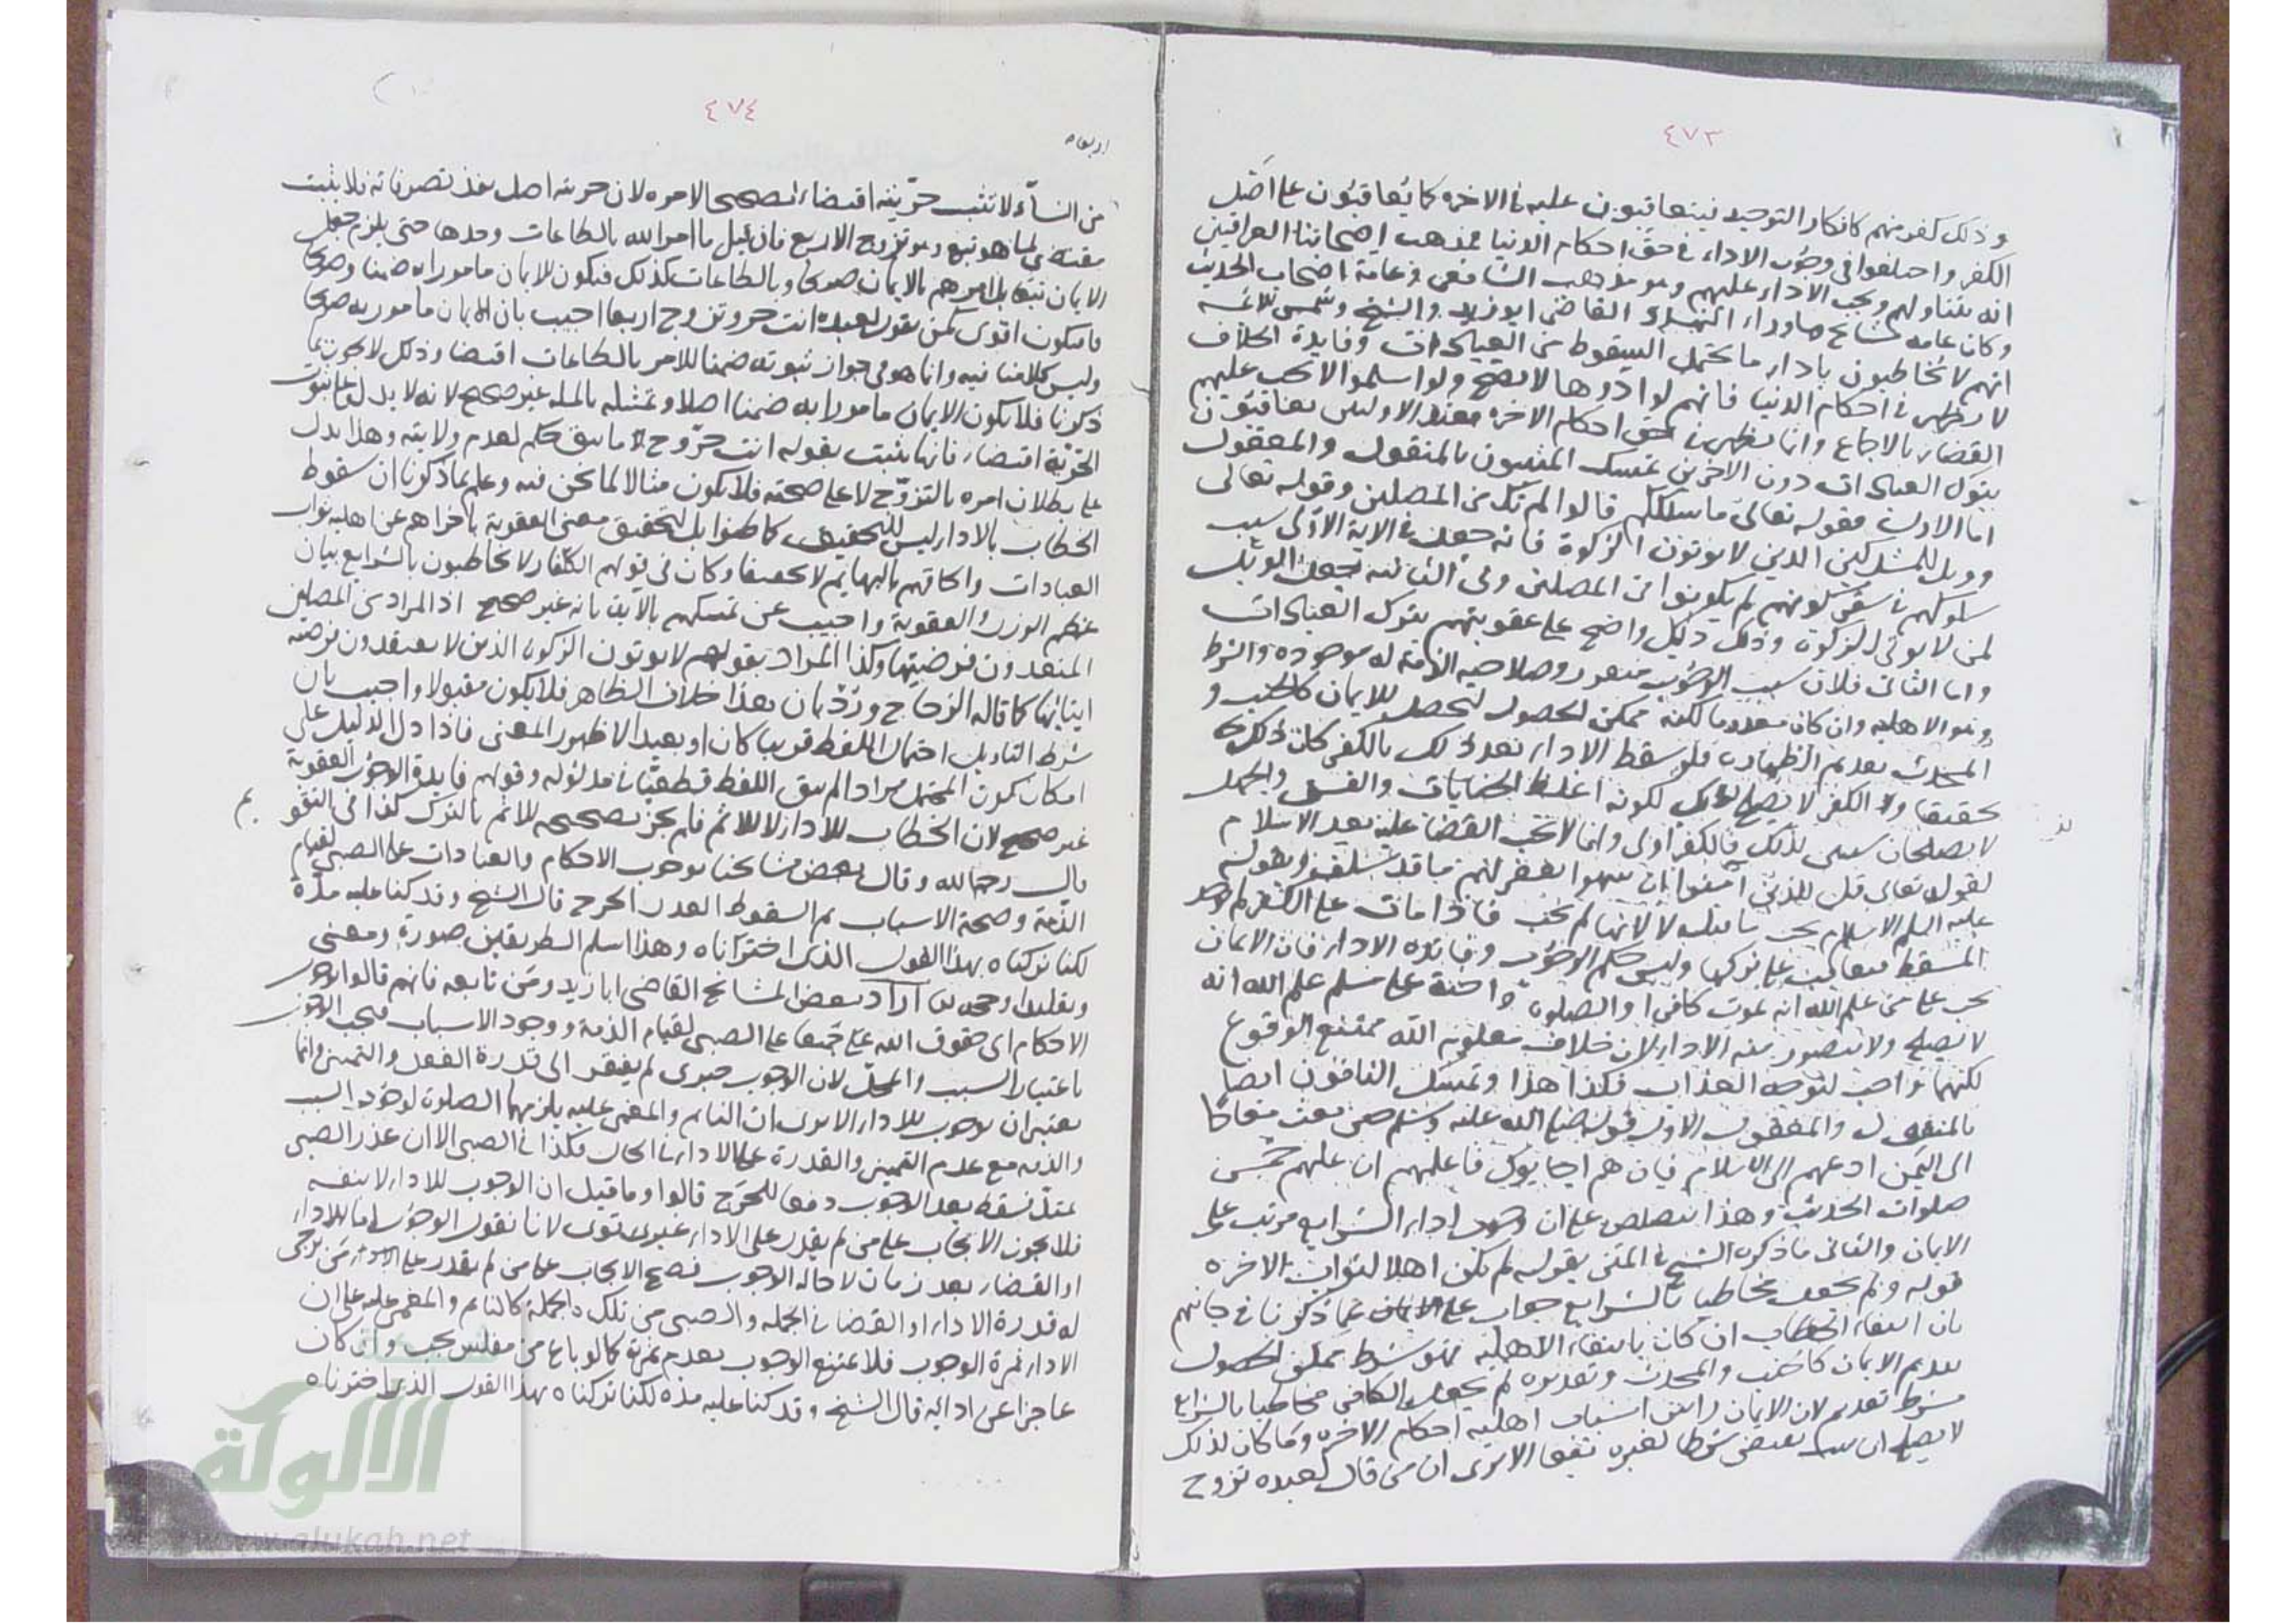 ٤٧٣
وذلك كفر منهم كانكار التوحيد فيتعاقبون عليه في الاخره كما يعاقبون على اصل
الكفر واختلفوا في وجوب الاداء في حق احكام الدنيا فمذهب اصحابنا العراقيين
انه يتناولهم ويجب الاداء عليهم وهو مذهب الشافعي وعامة اصحاب الحديث
وكان عامه مشايخ ماوراء النهر القاضي ابو زيد والشيخ وشمس الائمه
انهم لا يخاطبون باداء ما يحتمل السقوط من العبادات وفايدة الخلاف
لا يظهر في احكام الدنيا فانهم لو ادوها لا يصح ولو اسلموا لا تجب عليهم
القضاء بالاجماع وانما يظهر في حق احكام الاخره فعند الاولين يعاقبون
بترك العبادات دون الاخرين تمسك المثبتون بالمنقول والمعقول
اما الاول فقوله تعالى ما سلككم قالوا لم نك من المصلين وقوله تعالى
وويل للمشركين الذين لا يوتون الزكوة فانه جعل في الاية الاولى سبب
سلوكهم في سقر كونهم لم يكونوا من المصلين وفي الثانيه جعل الويل
لمن لا يوتي الزكوة وذلك دليل واضح على عقوبتهم بترك العبادات
واما الثاني فلان سبب الوجوب متقرر وصلاحيه الذمة له موجوده والشرط
وهو الاهليه وان كان معدوما لكنه ممكن الحصول لتحصل للايمان كالجنب و
المحدث بعدم الطهارة فلو سقط الاداء بعد ذلك بالكفر كان ذلك
تحقيقا والكفر لا يصلح لذلك لكونه اغلظ الجنايات والفسق والجهل
لا يصلحان سببا لذلك فالكفر اولى وانما لا تجب القضا عليه بعد الاسلام
لقوله تعالى قل للذين ان ينتهوا يغفر لهم ما قد سلف وبقوله
عليه السلم الاسلام يجب ما قبله لا لانها لم تجب فاذا مات على الكفر لم يوجد
المسقط فيعاقب على تركها وليس حكم الوجوب وفايده الاداء فان الايمان
يجب على من علم الله انه يموت كافرا والصلوة واجبة على مسلم علم الله انه
لا يصلي ولا يتصور منه الاداء لان خلاف معلوم الله ممتنع الوقوع
لكنهما واجب لتوجه العذاب فكذا هذا وتمسك النافون ايضا
بالمنقول والمعقول الاول قوله صلى الله عليه وسلم حين بعث معاذا
الى اليمن ادعهم الى الاسلام فان هم اجابوك فاعلمهم ان عليهم خمس
صلوات الحديث وهذا تنصيص على ان وجوب اداء الشرايع مرتب على
الايمان والثاني ما ذكره الشيخ في المتن بقوله لم يكن اهلا لثواب الاخره
قوله ولم يجعل مخاطبا بالشرايع جواب عما ذكرنا في جانبهم
بان انتفاء الخطاب ان كان بانتفاء الاهليه فهو شرط ممكن الحصول
بعدم الايمان كالجنب والمحدث وتقديره لم يجعل الكافر مخاطبا بالشرايع
بشرط تقديم الايمان لان الايمان راس اسباب اهليه احكام الاخره وما كان كذلك
لا يصلح ان يثبت بمقتضى شرطا لغيره تبعا الا ترى ان من قال لعبده تزوج
٤٧٤
اربعا
من النساء لا تثبت حريته اقتضاء تصحيحا لامره لان حريته اصل نفذ تصرفاته فلا يثبت
مقتضى لما هو تبع وهو تزوج الاربع فان قيل ما امر الله بالطاعات وحدها حتى يلزم جعل
الايمان تبعا بل امرهم بالايمان صريحا وبالطاعات كذلك فيكون الايمان مامورا به ضمنا وصريحا
فيكون اقوى كمن يقول لعبده انت حر وتزوج اربعا اجيب بان الايمان مامور به صريحا
وليس كلامنا فيه وانما هو في جواز ثبوته ضمنا للامر بالطاعات اقتضاء وذلك لا يجوز لما
ذكرنا فلا يكون الايمان مامورا به ضمنا اصلا وتمثيله بالمسله غير صحيح لانه لا يدل على ثبوت
الحرية اقتضاء فانها يثبت بقوله انت حر وتزوج ما يبق حكم لعدم ولايته وهذا يدل
على بطلان امره بالتزوج لا على صحته فلا يكون مثالا لما نحن فيه وعلم بما ذكرنا ان سقوط
الخطاب بالاداء ليس للتخفيف كما ظنوا بل لتحقيق معنى العقوبة باخراجهم عن اهليه ثواب
العبادات والحاقهم بالبهايم لا تخفيفا وكان في قولهم الكفار لا يخاطبون بالشرايع بيان
عظم الوزر والعقوبة واجيب عن تمسكهم بالايتين بانه غير صحيح اذ المراد من المصلين
المعتقدون فرضيتها وكذا المراد بقولهم لا يوتون الزكوة الذين لا يعتقدون فرضيه
ايتائها كما قاله الزجاج وردّ بان هذا خلاف الظاهر فلا يكون مقبولا واجيب بان
شرط التاويل احتمال اللفظ قريبا كان او بعيدا لا ظهور المعنى فاذا دل الدليل على
امكان كون المحتمل مرادا لم يبق اللفظ قطعيا في مدلوله وقولهم فايدة الوجوب العقوبة
غير صحيح لان الخطاب للاداء لا للاثم فلم يجز تصحيحه للاثم بالترك كذا في التقويم
قال رحمه الله وقال بعض مشايخنا بوجوب الاحكام والعبادات على الصبي لقيام
الذمة وصحة الاسباب ثم السقوط لعذر الحرج قال الشيخ وقد كنا عليه مدة
لكنا تركناه بهذا القول الذي اخترناه وهذا اسلم الطريقين صورة ومعنى
وتقليدا وحجه اراد ببعض المشايخ القاضي ابا زيد ومن تابعه فانهم قالوا بوجوب
الاحكام اي حقوق الله على جميعا على الصبي لقيام الذمة ووجود الاسباب فيجب الوجوب
باعتبار السبب والمحل لان الوجوب جبري لم يفتقر الى قدرة الفعل والتمييز وانما
يعتبران لوجوب الاداء الا يرى ان النايم والمغمى عليه يلزمهما الصلوة لوجود السبب
والذمه مع عدم التمييز والقدرة على الاداء في الحال فكذا في الصبي الا ان عذر الصبي
يمتد فسقط بعد الوجوب دفعا للحرج قالوا وما قيل ان الوجوب للاداء لا لنفسه
فلا يجوز الايجاب على من لم يقدر على الاداء غير قوى لانا نقول الوجوب اما للاداء
او القضاء بعد زمان لا حاله الوجوب فصح الايجاب على من لم يقدر على الاداء ممن يرجى
له قدرة الاداء او القضاء في الجمله والصبي من تلك الجملة كالنايم والمغمى عليه على ان
الاداء ثمرة الوجوب فلا يمتنع الوجوب بعدم ثمرته كما لو باع من مفلس يجب وان كان
عاجزا عن ادائه قال الشيخ وقد كنا عليه مده لكنا تركناه بهذا القول الذي اخترناه
الألوكة
www.alukah.net